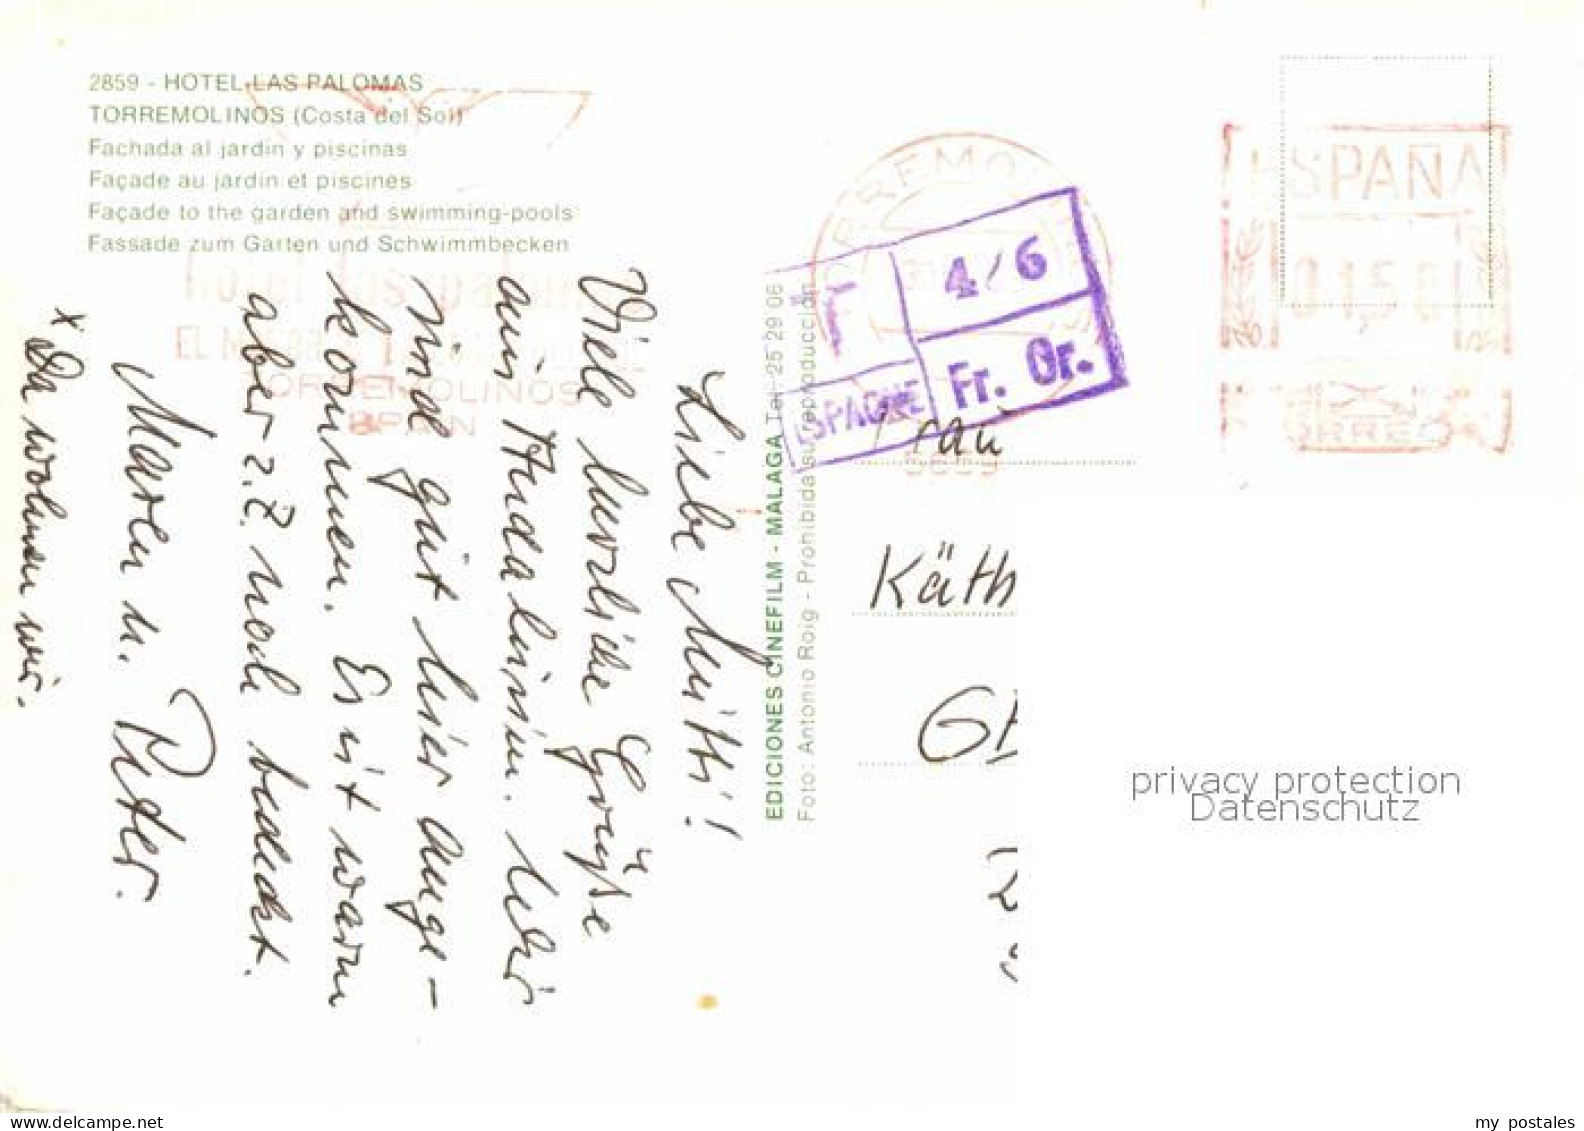 2859 - HOTEL LAS PALOMAS
TORREMOLINOS (Costa del Sol)
Fachada al jardin y piscinas
Façade au jardin et piscines
Façade to the garden and swimming-pools
Fassade zum Garten und Schwimmbecken
TORREMOLINOS
SPAIN
Liebe Mutti!
Viele herzliche Grüße
aus Andalusien.
sind gut hier ange-
kommen. Es ist warm
aber z.Z. noch bedeckt.
Maren u. Peter.
x Da wohnen wir.
EDICIONES CINEFILM - MALAGA Tel. 25 29 06
Foto: Antonio Roig - Prohibida su reproducción
T
4/6
ESPAGNE
Fr. Or.
ESPAÑA
CORREOS
Frau
Käth
privacy protection
Datenschutz
my postales